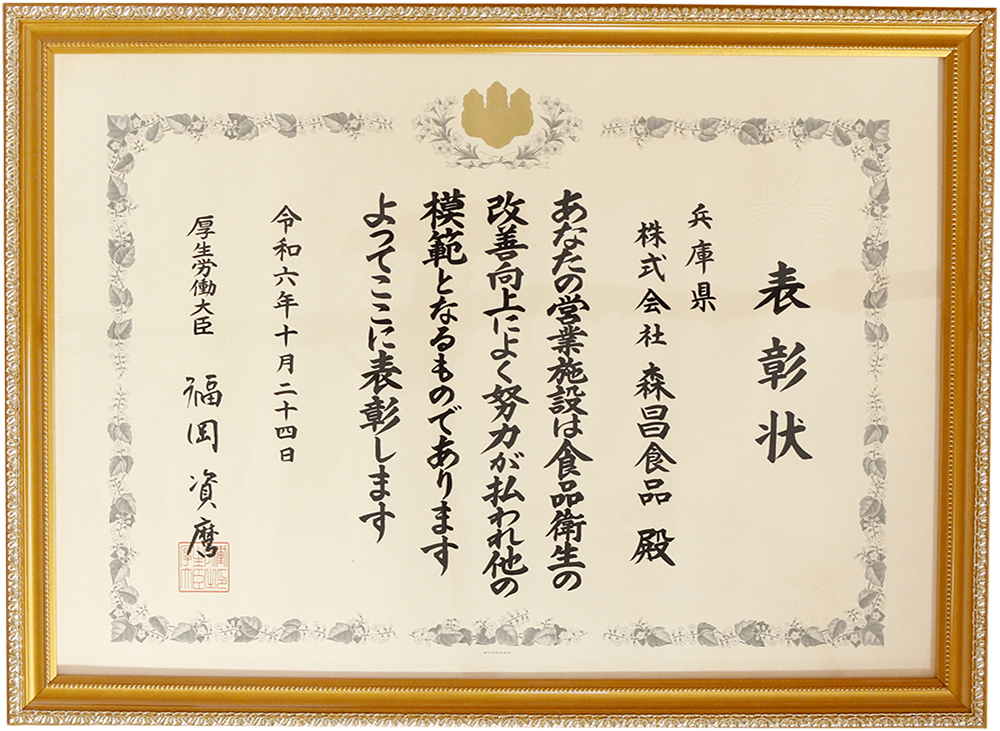 表彰状
兵庫県
株式会社 森昌食品 殿
あなたの営業施設は食品衛生の
改善向上によく努力が払われ他の
模範となるものであります
よってここに表彰します
令和六年十月二十四日
厚生労働大臣 福岡資麿